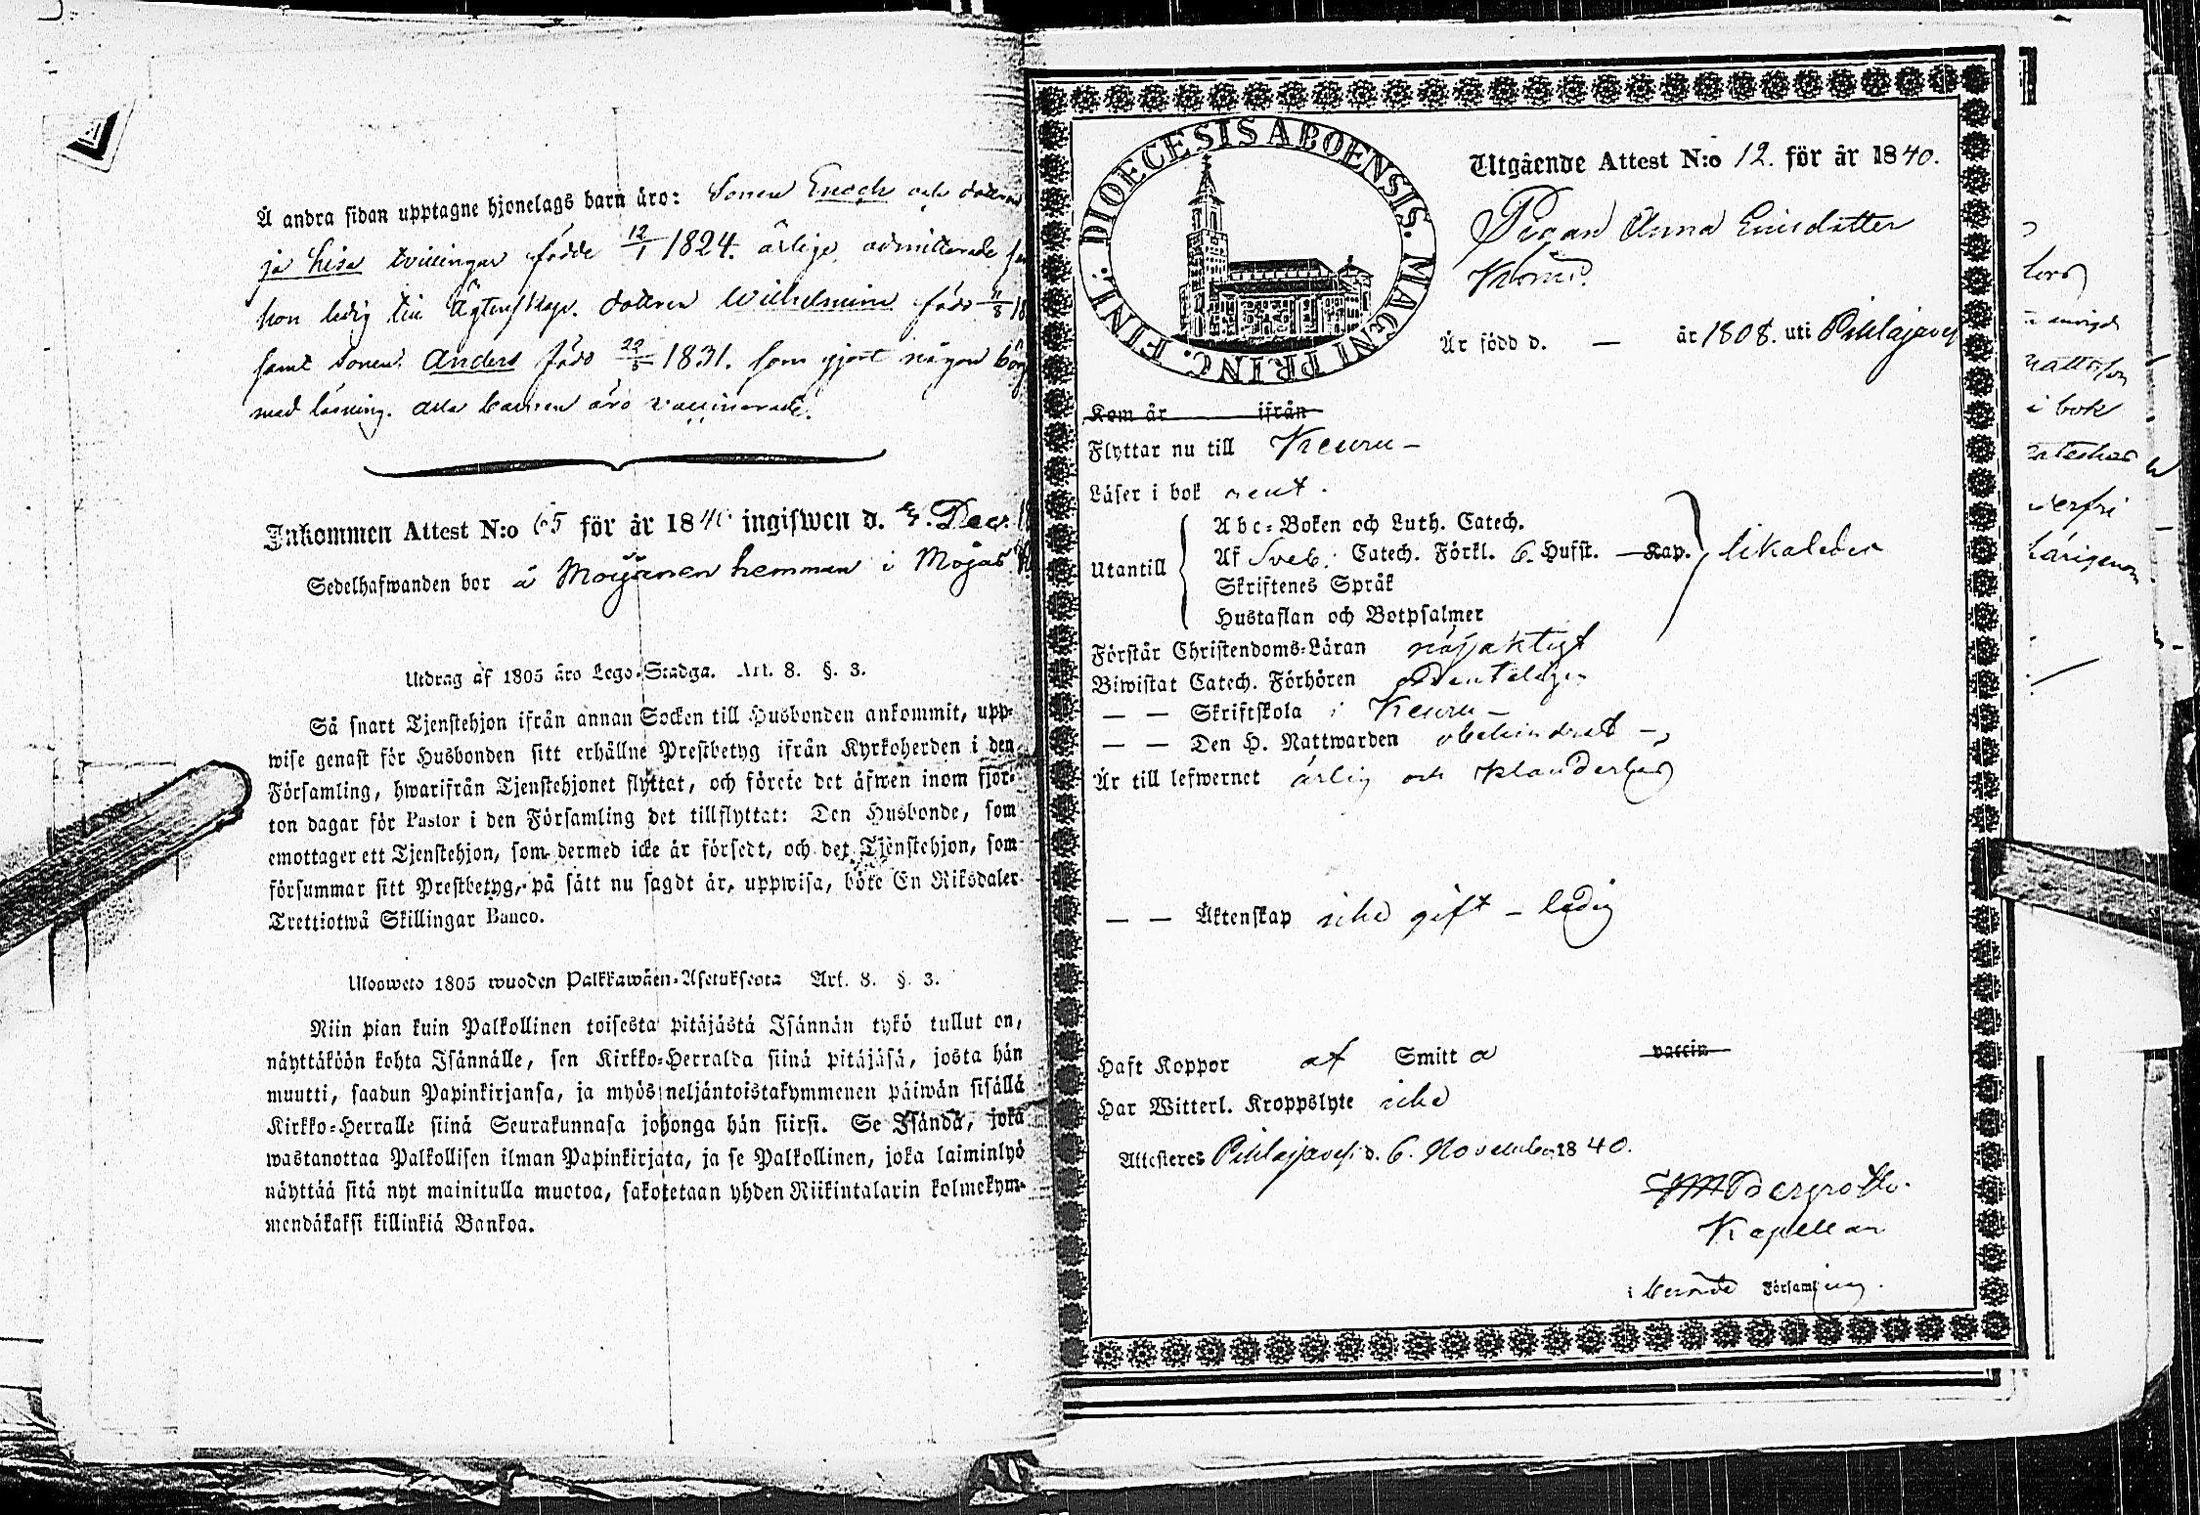 Å andra sidan upptagne hjonelags barn äro: Sonen Enoch och
Lisa tvillingar födde 12/1 1824. ärlige, admitterade
hon ledig till Ägtenskap. dottren Wilhelmina född
samt sonen Anders född 1831. som gjort någon
med läsning. Alla barnen äro vaccinerade.
Inkommen Attest N:o 65 för år 1840 ingifwen d. Dec.
Sedelhafwanden bor å hemman i
Utdrag af 1805 års Lego-Stadga. Art. 8. §. 3.
Så snart Tjenstehjon ifrån annan Socken till Husbonden ankommit, upp-
wise genast för Husbonden sitt erhållne Prestbetyg ifrån Kyrkoherden i den
Församling, hwarifrån Tjenstehjonet flyttat, och förete det äfwen inom fjor-
ton dagar för Pastor i den Församling det tillflyttat: Den Husbonde, som
emottager ett Tjenstehjon, som dermed icke är försedt, och det Tjenstehjon, som
försummar sitt Prestbetyg, på sätt nu sagdt är, uppwisa, böte En Riksdaler
Trettiotwå Skillingar Banco.
Ulosweto 1805 wuoden Palkkawäen-Asetuksesta Art. 8. §. 3.
Niin pian kuin Palkollinen toisesta pitäjästä Isännän tykö tullut on,
näyttäköön kohta Isännälle, sen Kirkko-Herralda siinä pitäjäsä, josta hän
muutti, saadun Papinkirjansa, ja myös neljäntoistakymmenen päiwän sisällä
Kirkko-Herralle siinä Seurakunnasa johonga hän siirsi. Se Isändä, joka
wastanottaa Palkollisen ilman Papinkirjata, ja se Palkollinen, joka laiminlyö
näyttää sitä nyt mainitulla muotoa, sakotetaan yhden Riikintalarin kolmekym-
mendäkaksi killinkiä Bankoa.
DIOECESIS ABOENSIS. MAGNI PRINC. FINL.
Utgående Attest N:o 12. för år 1840.
Pigan Anna
Är född d. — år 1808. uti Pihlajavesi
Kom år ifrån
Flyttar nu till Keuru –
Läser i bok rent.
Utantill
Abc-Boken och Luth. Catech.
Af Sveb. Catech. Förkl. 6. Hufst. Kap. likaledes
Skriftenes Språk
Hustaflan och Botpsalmer
Förstår Christendoms-Läran nöjaktigt
Biwistat Catech. Förhören ordenteligen
— — Skriftskola i Keuru –
— — Den H. Nattwarden obehindrad –
Är till lefwernet ärlig och klanderfri
— — Äktenskap icke gift – ledig
Haft Koppor af Smitta vaccin
Har Witterl. Kroppslyte icke
Attesteres Pihlajavesi d. 6. November 1840.
Bergroth.
Kapellan
i berörde Församling.
i bok